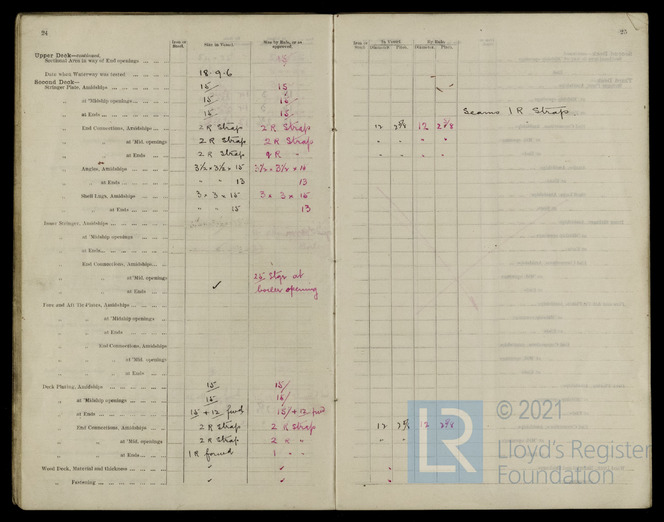 24
Iron or Steel. Size in Vessel. Size by Rule, or as approved.
Upper Deck—continued.
Sectional Area in way of End openings
Date when Waterway was tested 18-9-6
Second Deck—
Stringer Plate, Amidships 15 15
" at 'Midship openings 15 15
" at Ends 15 15
" End Connections, Amidships 2 R Strap 2 R Straps
" " at 'Mid. openings 2 R Strap 2 R Straps
" " at Ends 2 R Strap
Angles, Amidships 3½ × 3½ × 15 3½ × 3½ × 15
" at Ends " " 13 13
Shell Lugs, Amidships 3 × 3 × 15 3 × 3 × 15
" at Ends " " 15 13
Inner Stringer, Amidships
" at 'Midship openings
" at Ends
End Connections, Amidships
" at 'Mid. openings at
" at Ends ✓ boiler opening
Fore and Aft Tie Plates, Amidships
" at 'Midship openings
" at Ends
End Connections, Amidships
" at 'Mid. openings
" at Ends
Deck Plating, Amidships 15 15
" at 'Midship openings 15 15
" at Ends 15 + 12 fwd 15 + 12 fwd
" End Connections, Amidships 2 R Strap 2 R Straps
" " at 'Mid. openings 2 R Strap 2 R "
" " at Ends 1 R joined 1 " "
Wood Deck, Material and thickness ✓ ✓
" Fastening ✓ ✓
25
Iron or Steel. In Vessel. By Rule.
Diameter. Pitch. Diameter. Pitch.
Seams 1 R Strap
12 2⅝ 12 2⅝
" " " "
" " " "
12 2⅝ 12 2⅝
" "
© 2021
LR Lloyd's Register
Foundation